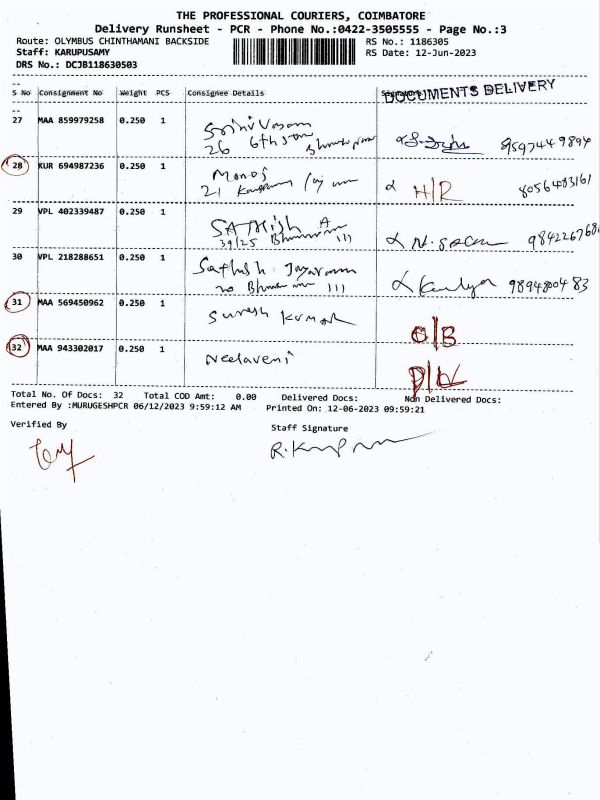 THE PROFESSIONAL COURIERS, COIMBATORE
Delivery Runsheet - PCR - Phone No.:0422-3505555 - Page No.:3
Route: OLYMBUS CHINTHAMANI BACKSIDE RS No.: 1186305
Staff: KARUPUSAMY RS Date: 12-Jun-2023
DRS No.: DCJB118630503
S No Consignment No Weight PCS Consignee Details DOCUMENTS DELIVERY
27 MAA 859979258 0.250 1 Srinivasan
26 6th
28 KUR 694987236 0.250 1 Manoj H/R 8056483161
21
29 VPL 402339487 0.250 1 SATHish A
39/25
30 VPL 218288651 0.250 1 Sathish Jayaram
20
31 MAA 569450962 0.250 1 Suresh Kumar O/B
32 MAA 943302017 0.250 1 Neelaveni D/L
Total No. Of Docs: 32 Total COD Amt: 0.00 Delivered Docs: Non Delivered Docs:
Entered By :MURUGESHPCR 06/12/2023 9:59:12 AM Printed On: 12-06-2023 09:59:21
Verified By Staff Signature